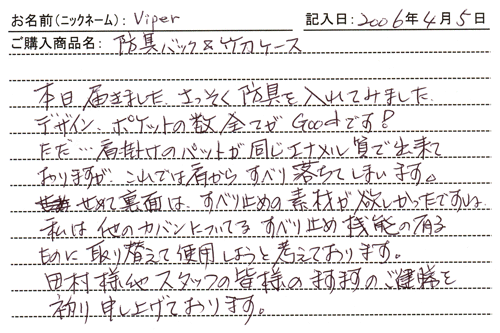 お名前(ニックネーム): Viper 記入日: 2006年4月5日
ご購入商品名: 防具バック&竹刀ケース
本日届きました。さっそく防具を入れてみました。
デザイン、ポケットの数、全てが Goodです!
ただ…肩掛けのパットが同じエナメル質で出来て
おりますが、これでは肩からすべり落ちてしまいます。
せめて裏面は、すべり止めの素材が欲しかったですね。
私は他のカバンについてるすべり止め機能の有る
ものに取り替えて使用しようと考えております。
田村様他スタッフの皆様のますますのご健勝を
祈り申し上げております。